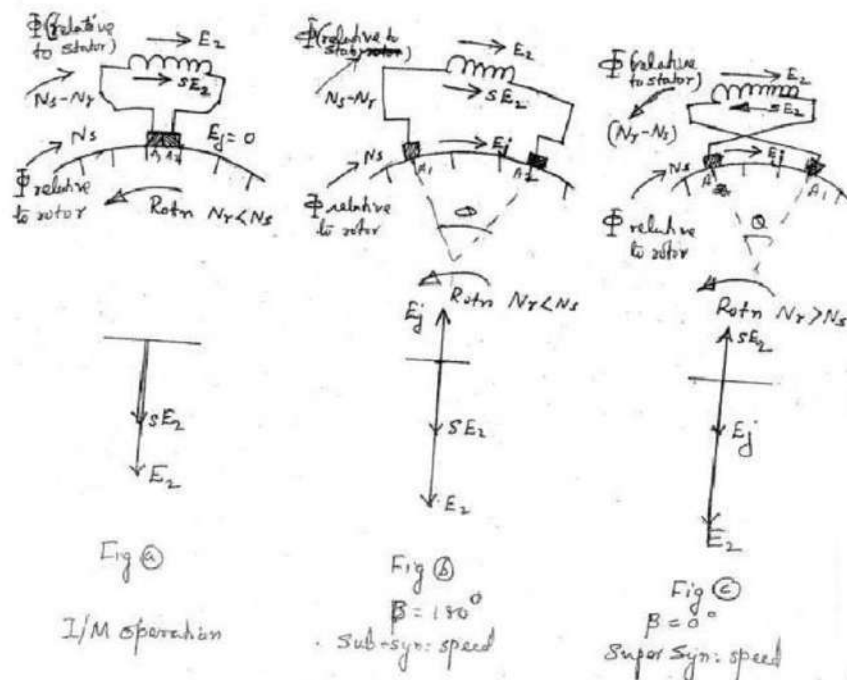 Φ (relative
to stator)
E2
sE2
Ns-Nr
Ns
A1 A2
Ej = 0
Φ relative
to rotor
Rotn Nr < Ns
sE2
E2
Fig ⓐ
I/M operation
Φ (relative to
E2
sE2
Ns-Nr
Ns
A1
Ej
A2
Φ relative
to rotor
θ
Rotn Nr < Ns
Ej
sE2
E2
Fig ⓑ
β = 180°
Sub-syn: speed
Φ (relative
to stator)
E2
sE2
(Nr-Ns)
Ns
Ej
A1
Φ relative
to rotor
θ
Rotn Nr > Ns
sE2
Ej
E2
Fig ⓒ
β = 0°
Super Syn: speed